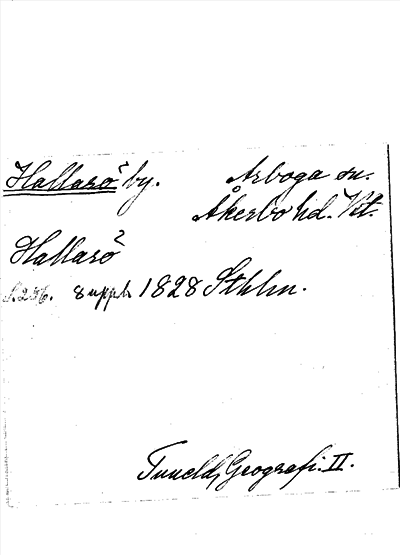 Hallarö by. Arboga sn.
Åkerbo hd. Vtl.
Hallarö
S. 256. 8 uppl. 1828 Sthlm.
Tuneld, Geografi. II.